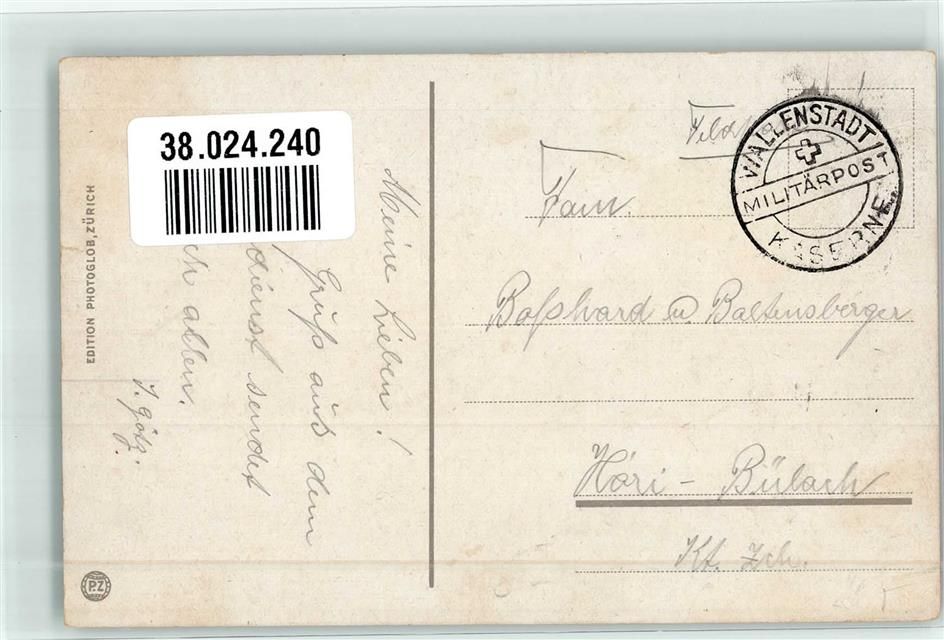 38.024.240
EDITION PHOTOGLOB, ZÜRICH
Meine Lieben!
Gruß aus dem
dienst sendet
ch allen.
J. Götz.
PZ
WALLENSTADT
MILITÄRPOST
KASERNE
Fam.
Boßhard u Baltensberger
Höri - Bülach
Kt. Zch.